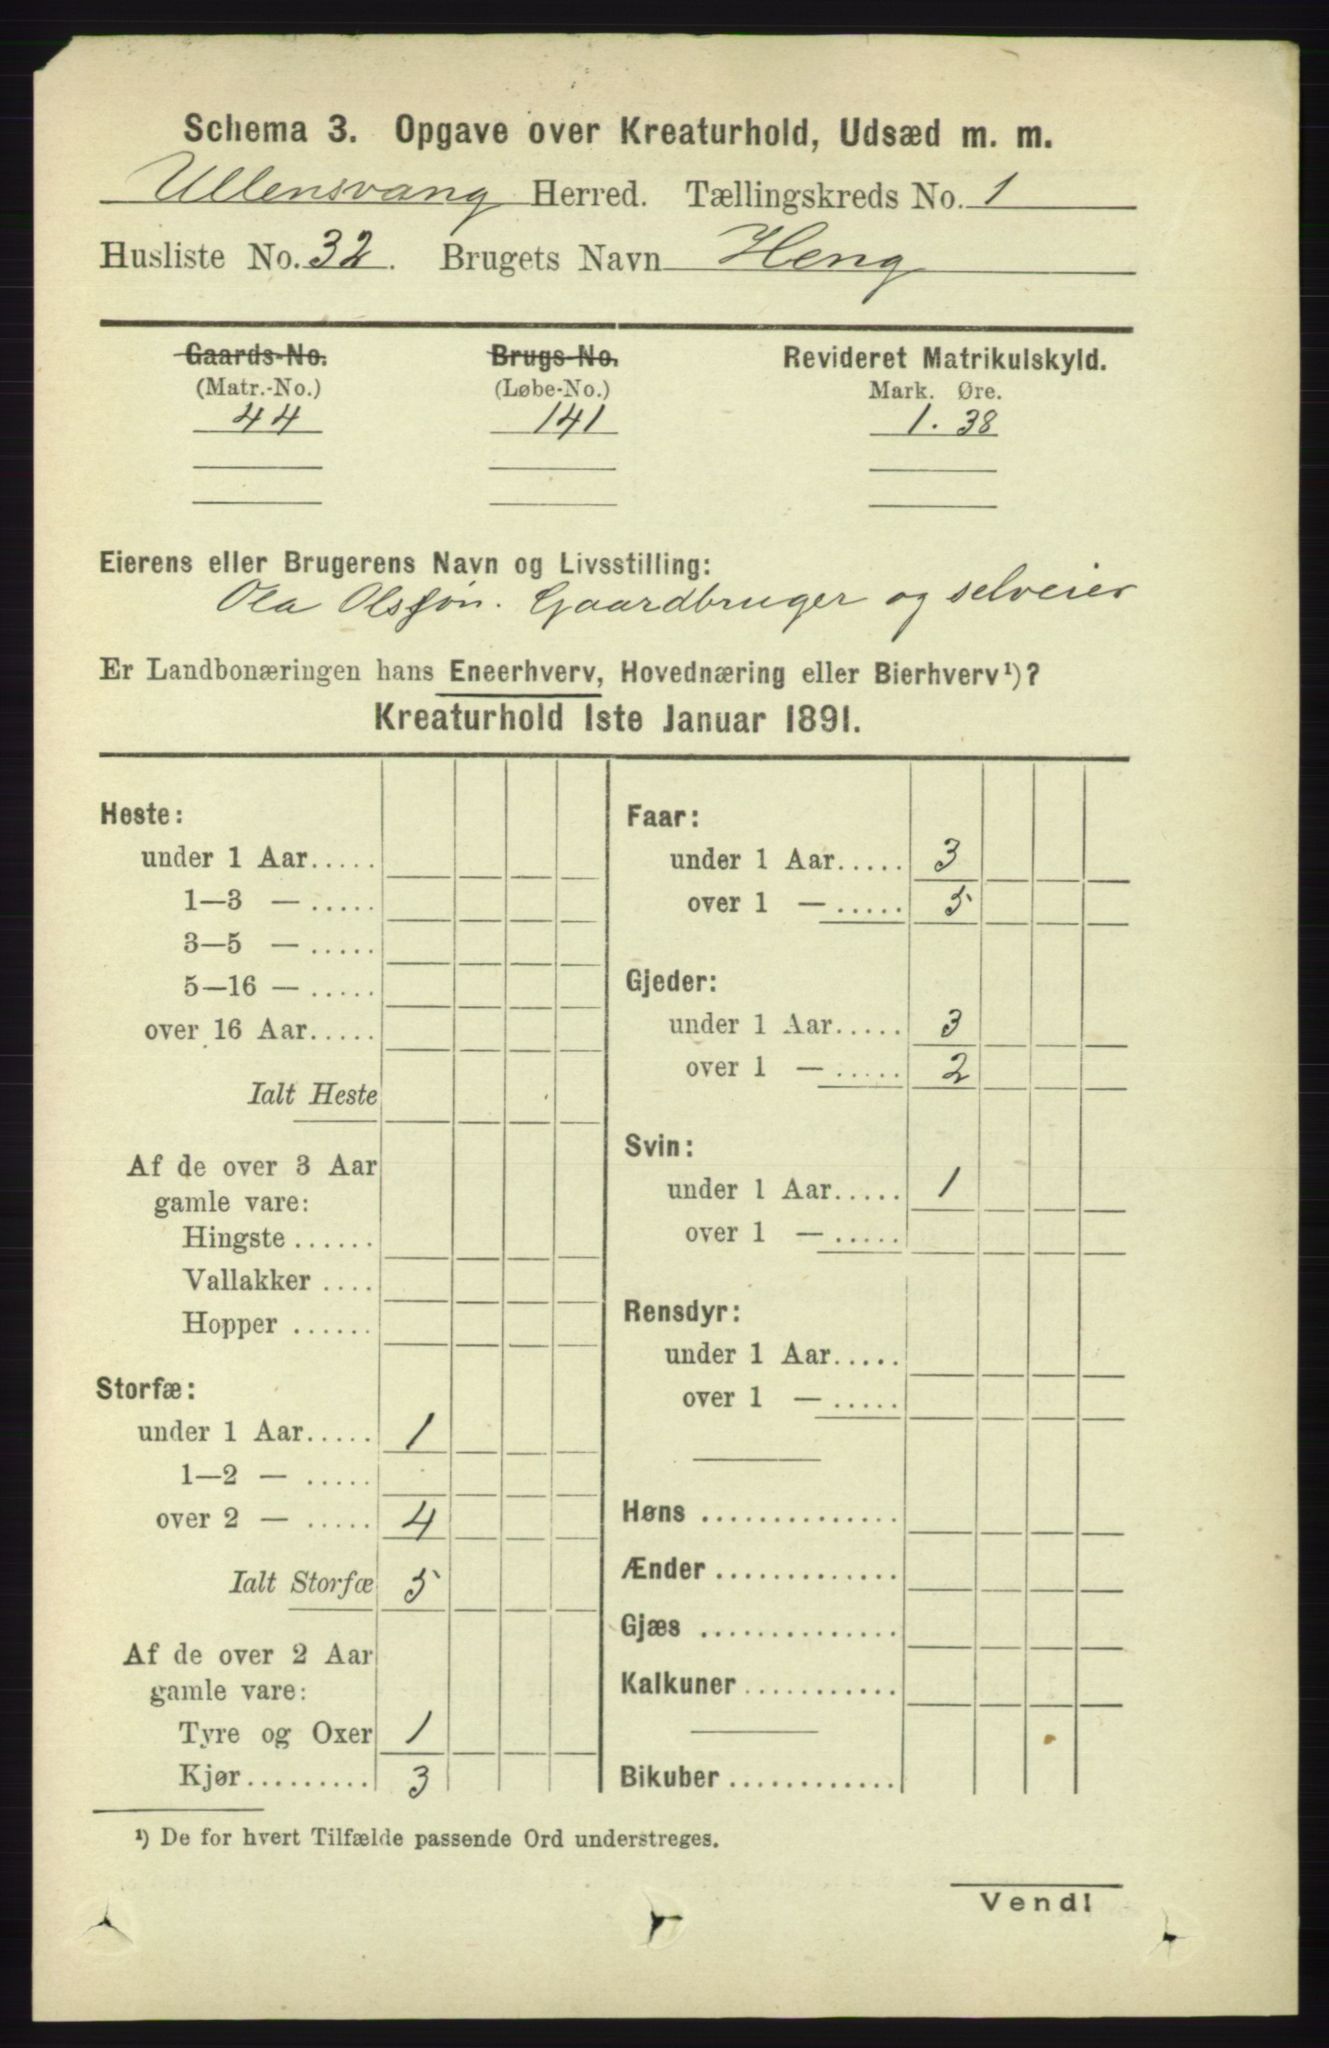 Schema 3. Opgave over Kreaturhold, Udsæd m. m.
Ullensvang Herred. Tællingskreds No. 1
Husliste No. 32. Brugets Navn Heng
Gaards-No. Brugs-No. Revideret Matrikulskyld.
(Matr.-No.) (Løbe-No.) Mark. Øre.
44 141 1. 38
Eierens eller Brugerens Navn og Livsstilling:
Ola Olssøn. Gaardbruger og selveier
Er Landbonæringen hans Eneerhverv, Hovednæring eller Bierhverv¹)?
Kreaturhold 1ste Januar 1891.
Heste:
under 1 Aar.....
1—3 — .....
3—5 — .....
5—16 — .....
over 16 Aar.....
Ialt Heste
Af de over 3 Aar
gamle vare:
Hingste ......
Vallakker ....
Hopper ......
Storfæ:
under 1 Aar..... 1
1—2 — .....
over 2 — ..... 4
Ialt Storfæ 5
Af de over 2 Aar
gamle vare:
Tyre og Oxer 1
Kjør.......... 3
Faar:
under 1 Aar..... 3
over 1 — ..... 5
Gjeder:
under 1 Aar..... 3
over 1 — ..... 2
Svin:
under 1 Aar..... 1
over 1 — .....
Rensdyr:
under 1 Aar.....
over 1 — .....
Høns ..............
Ænder .............
Gjæs ..............
Kalkuner ...........
Bikuber ............
¹) De for hvert Tilfælde passende Ord understreges.
Vend!